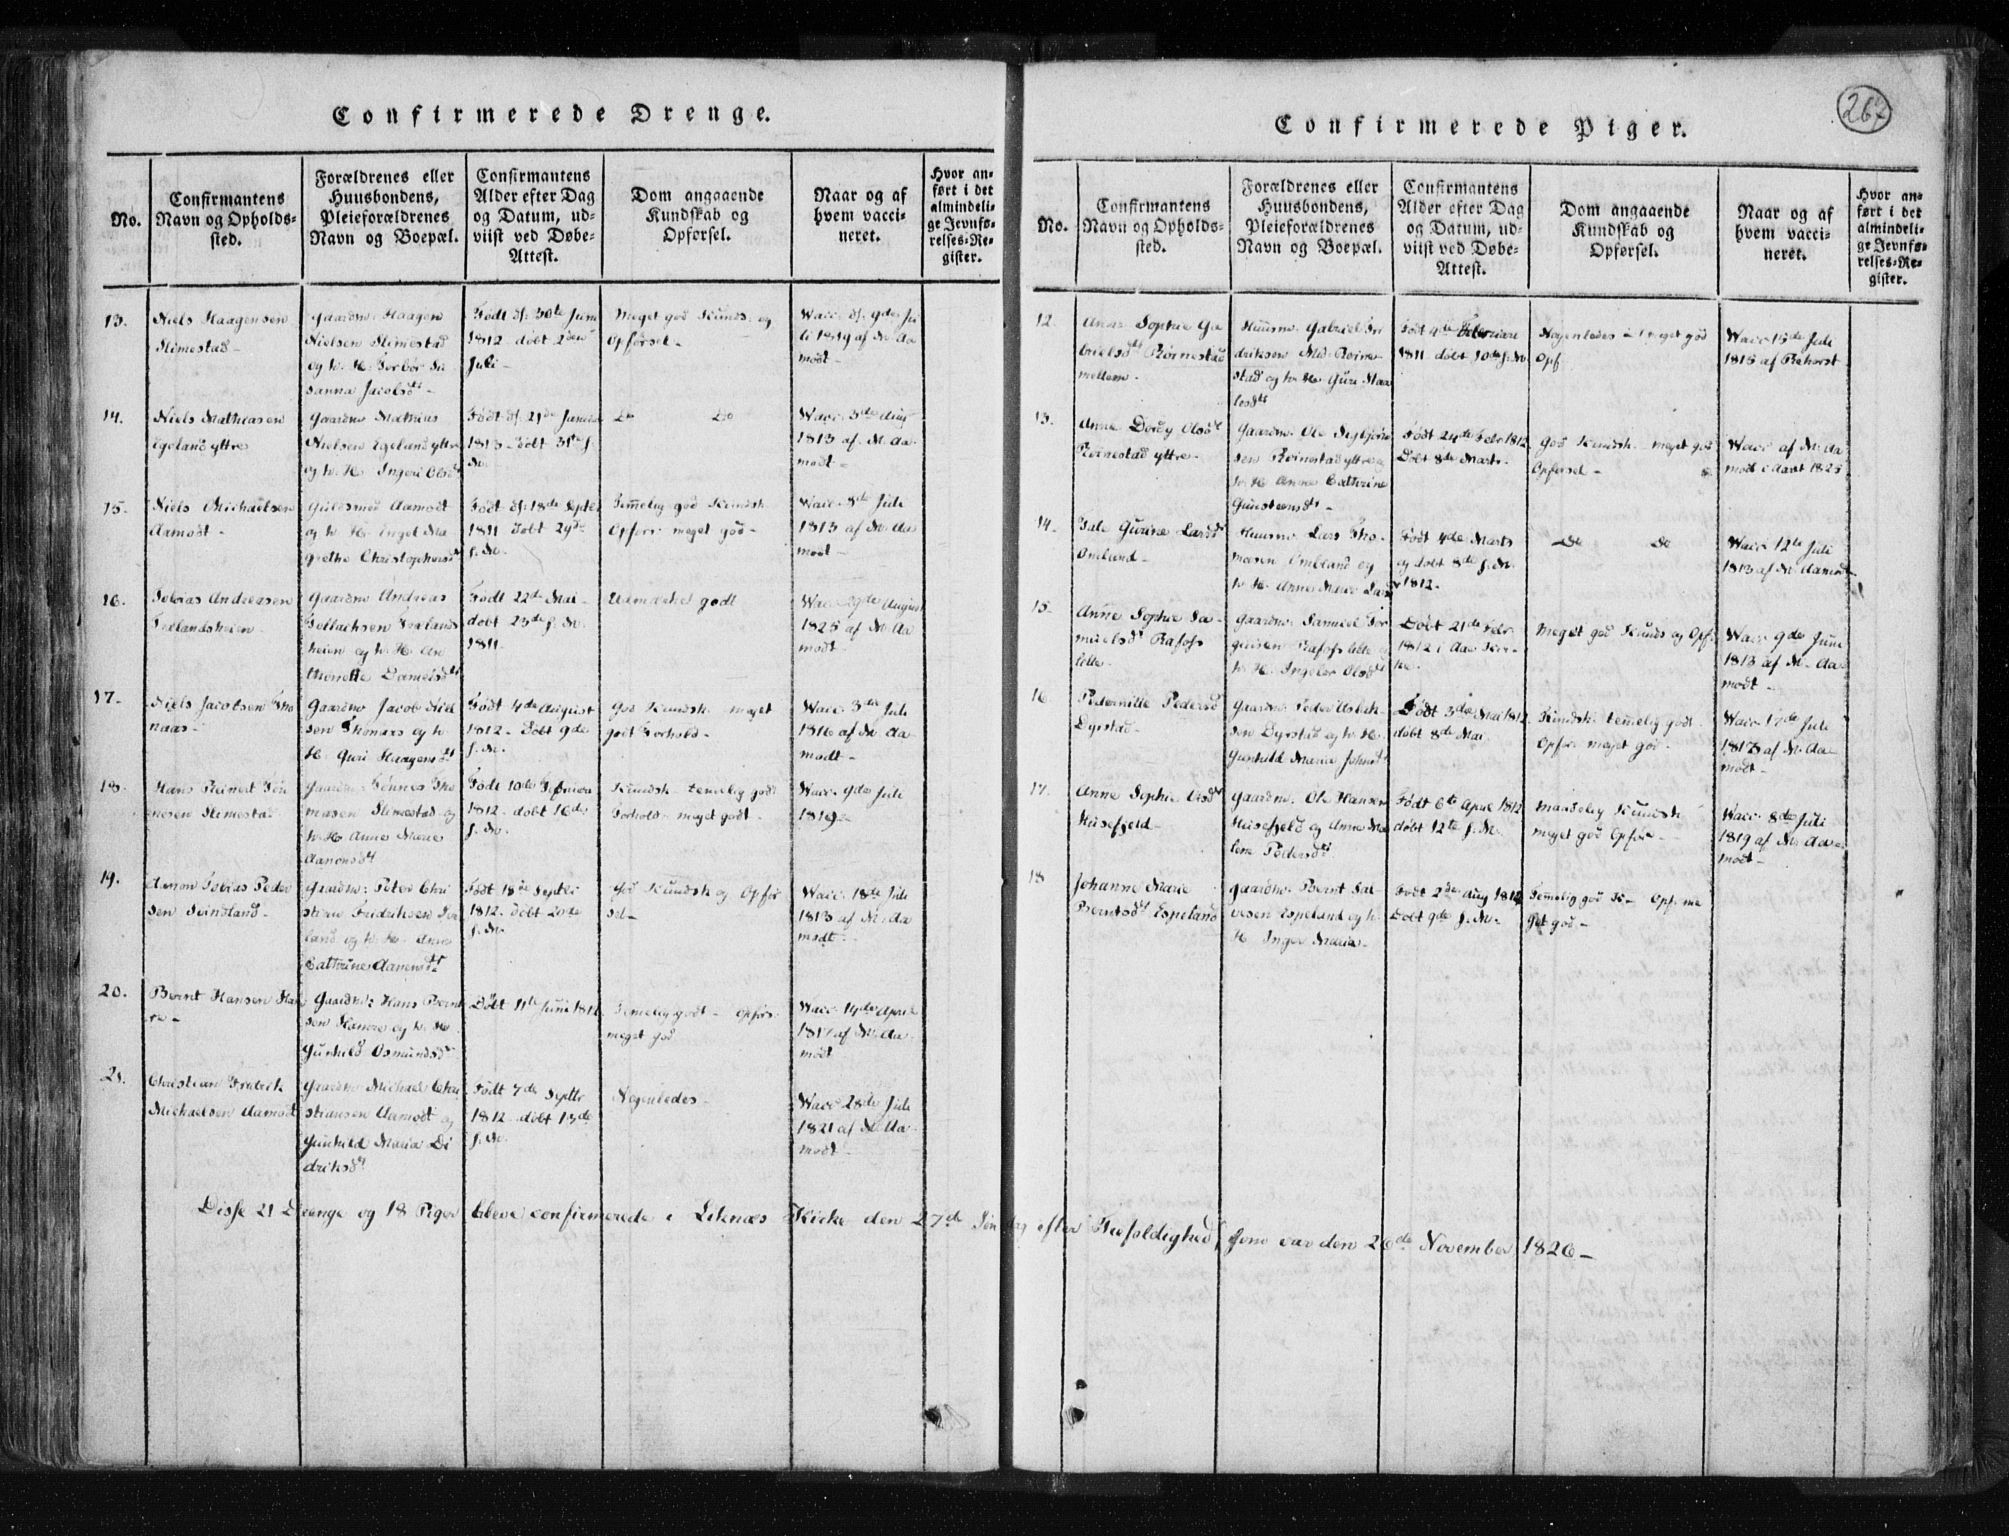 Confirmerede Drenge.
No.
Confirmantens
Navn og Opholds-
sted.
Forældrenes eller
Huusbondens,
Pleieforældrenes
Navn og Boepæl.
Confirmantens
Alder efter Dag
og Datum, ud-
viist ved Døbe-
Attest.
Dom angaaende
Kundskab og
Opførsel.
Naar og af
hvem vacci-
neret.
Hvor an-
ført i det
almindeli-
ge Jevnfø-
relses-Re-
gister.
13.
Niels Haagensen
Slimestad
Gaardm: Haagen
Nielsen Slimestad
og h. K. Torbør Su
sanna Jacobsdt
Født d: 30te Juni
1812 døbt 2den
Juli
Meget god Kunds. og
Opførsel
Vacc. d: 9de Ju
li 1819 af M. Aa
modt
14.
Niels Mathiasen
Egeland yttre
Gaardm Mathias
Nielsen Egeland yttre
og h. K. Ingeri Olsdt
Født d: 21de Januar
1813 døbt 31te s.
M.
Do Do
Vacc. 3de Aug
1813 af M. Aa
modt
15.
Niels Michaelsen
Aamodt
Guldsmed Aamodt
og h. K. Engel Ma
grethe Christophersdt
Født d: 18de Septer
1811 døbt 29de
s. M.
Temelig god Kundsk
Opførs. meget god
Vacc. 8de Juli
1813 af M. Aa
modt
16.
Tobias Andreasen
Gaardm Andreas
Tollachsen
heien og h. K. An
thonette Danielsdt
Født 22de Mai
døbt 23de s. M.
1811
Udmærket godt
Vacc. 29de August
1825 af M. Aa
modt
17.
Niels Jacobsen Tho
naas
Gaardm Jacob Niel
sen Thonaas og h.
K. Guri Haagensdt
Født 4de August
1812. Døbt 9de
s. M.
God Kundsk. meget
godt Forhold
Vacc. 3de Juli
1816 af M. Aa
modt
18.
Hans Reinert Tøn
nesen Slimestad
Gaardm Tønnes Tho
masen Slimestad og
h. K. Anne Marie
Aanonsdt
Født 10de
1812. døbt 16de
s. M.
Kundsk. temelig godt
Forhold meget godt
Vacc. 9de Juli
1819
19.
Aanon Tobias Peder
sen Svindland
Gaardm: Peter Chri
stian Friderichsen Svi
land og h. K. Anne
Cathrine Aanensdt
Født 18de Septer
1812. døbt 20de
s. M.
God Kundsk og Opfør
sel
Vacc. 18de Juli
1813 af M. Aa
modt
20.
Bernt Hansen Ha
re
Gaardm: Hans Bernt
sen Hamre og h. K.
Gunhild Osmundsdt
Døbt 11te Juni 1812
Temelig godt Opførs.
meget god
Vacc. 14de April
1817 af M. Aa
modt
21.
Christian Fridrich
Michaelsen Aamodt
Gaardm Michael Chri
stiansen Aamodt og
Gunhild Maria Di
driksdt
Født 7de Septbr
1812 døbt 13de
s. M.
Nogenledes
Vacc 28de Juli
1821 af M. Aa
modt
Confirmerede Piger.
267
No.
Confirmantens
Navn og Opholds-
sted.
Forældrenes eller
Huusbondens,
Pleieforældrenes
Navn og Boepæl.
Confirmantens
Alder efter Dag
og Datum, ud-
viist ved Døbe-
Attest.
Dom angaaende
Kundskab og
Opførsel.
Naar og af
hvem vacci-
neret.
Hvor an-
ført i det
almindeli-
ge Jevnfø-
relses-Re-
gister.
12.
Anne Sophie Ga
brielsdt Røinestad
mellem
Huusm. Gabriel Fri
driksen Mel. Røine
stad og h. K. Guri
Født 4de Februari
1811 døbt 10de s. M.
Nogenledes meget god
Opf
Vacc 15de Juli
1815 af
13.
Anne Dordy Olsdt
Røinestad yttre
Gaardm. Ole Sigbjørn
sen Røinestad yttre og
h. K. Anne Cathrine
Gunstensdt
Født 24de Febr 1812
Døbt 8de Marts
god Kundsk. meget god
Opførsel
Vacc af M. Aa
modt i Aaret 1825
14.
Tale Gurine Larsdt
Omland
Huusm. Lars Tho
masen Omland og
h. K. Anne Marie Larsdt
Født 4de Marts
og døbt 8de s. M.
1812.
Do Do
Vacc 12te Juli
1813 af M. Aamodt
15.
Anne Sophie Sa
muelsdt Rafoss
lille
Gaardm. Samuel Tor
giusen Rafoss lille
h. K. Ingebor Olsdt
Døbt 21de Febr
1812 i Aae Kir
ke.
Meget god Kunds og Opf.
Vacc 9de Juni
1813 af M. Aa
modt
16
Pedernille Pedersd
Dyrstad
Gaardm. Peder Asbiøh
sen Dyrstad og h. K.
Gunhild Maria Johnsdt
Født 3de Mai 1812
døbt 8de Mai
Kundsk. temelig godt
Opfør. meget god
Vacc 17de Juli
1817 af M. Aa
modt
17.
Anne Sophie Olsdt
Husefjeld
Gaardm. Ole Hansen
Husefjeld og Anne Ma
lene Pedersdt
Født 6te April 1812
døbt 12te s. M.
maadelig Kundsk
meget god Opføre
Vacc. 8de Juli
1819 af M. Aa
modt
18
Johanne Marie
Berntsdt Espeland
Gaardm. Bernt Sal
vesen Espeland og h.
K Inger Maria
Født 2de Aug 1812
Døbt 9de s. M.
Temelig god K. Opf. me
get god
Disse 21 Drenge og 18 Piger bleve confirmerede i Liknæs Kirke den 27de Søndag efter Trefoldighed, som var den 26de November 1826